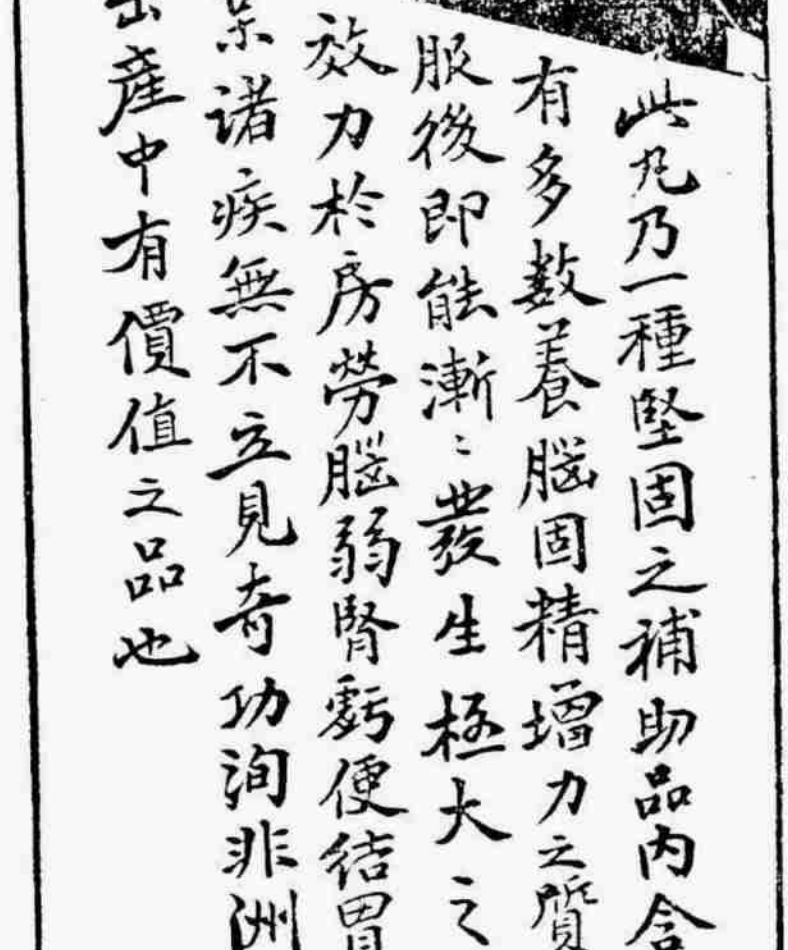 此丸乃一種堅固之補助品內含
有多數養腦固精增力之質
服後即能漸〻發生極大之
效力於房勞腦弱腎虧便結胃
呆諸疾無不立見奇功洵非洲
出產中有價值之品也